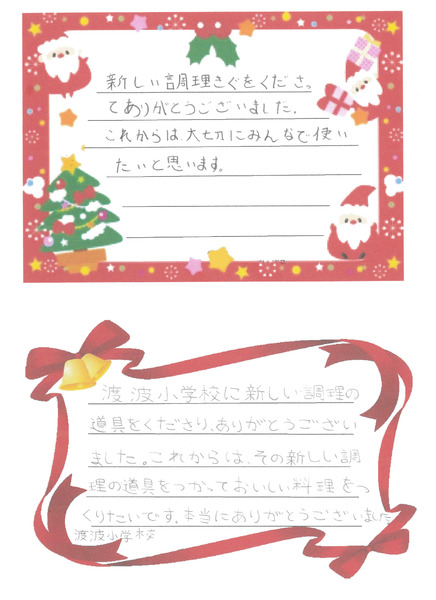 新しい調理きぐをくださっ
てありがとうございました.
これからは大切にみんなで使い
たいと思います。
渡波小学校に新しい調理の
道具をくださり、ありがとうござい
ました。これからは、その新しい調
理の道具をつかっておいしい料理をつ
くりたいです。本当にありがとうございました
渡波小学校